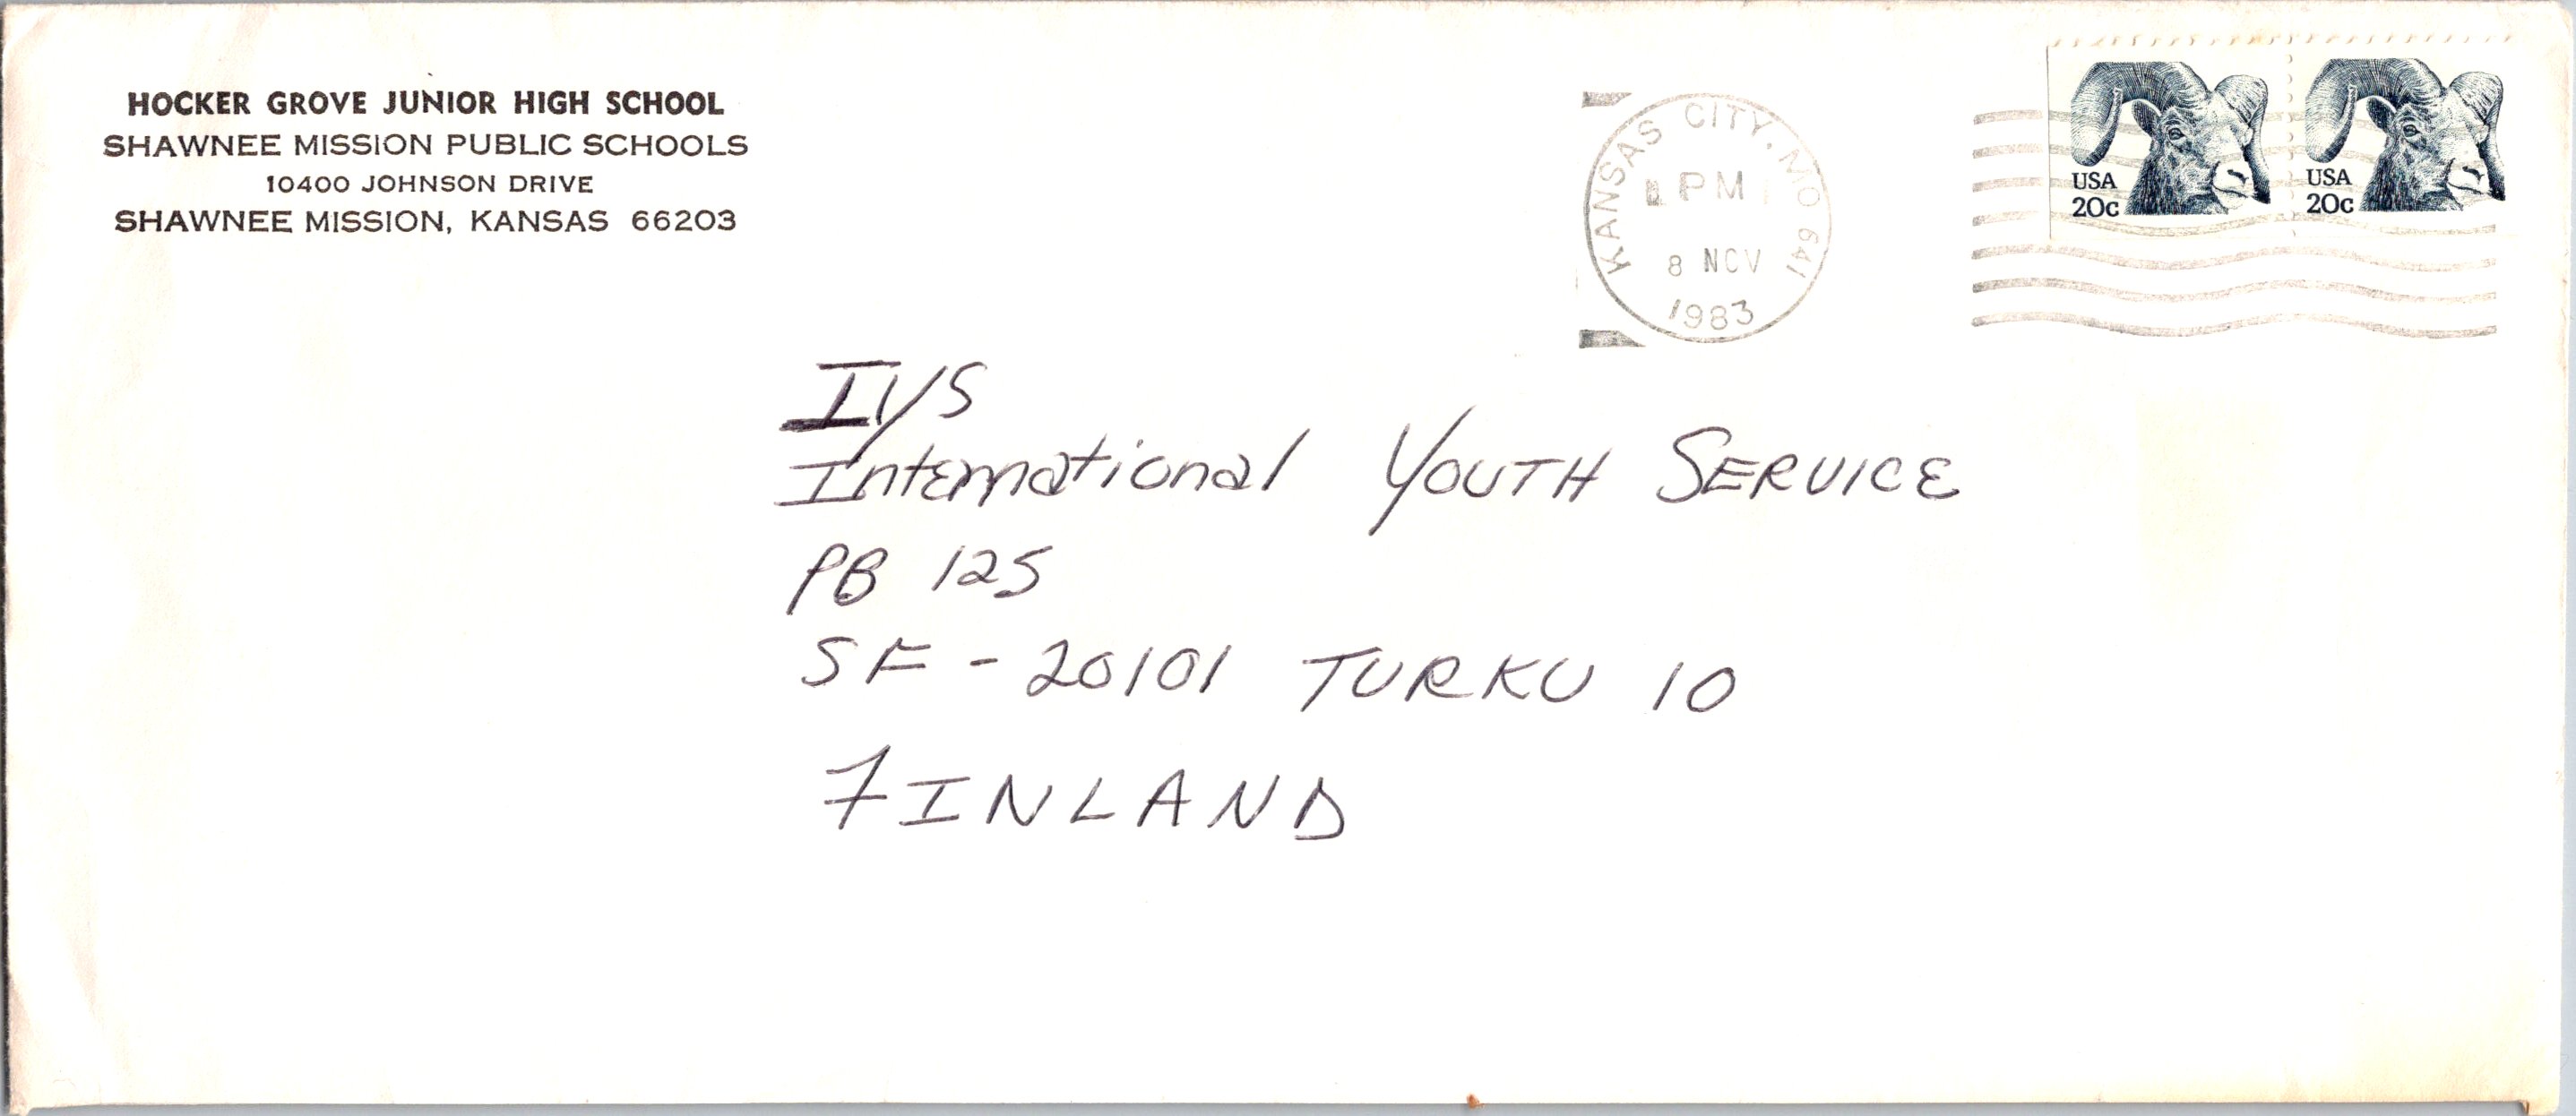 HOCKER GROVE JUNIOR HIGH SCHOOL
SHAWNEE MISSION PUBLIC SCHOOLS
10400 JOHNSON DRIVE
SHAWNEE MISSION, KANSAS 66203
KANSAS CITY, MO 641
PM
8 NOV
1983
USA
20c
USA
20c
IYS
International YOUTH SERVICE
PB 125
SF - 20101 TURKU 10
FINLAND